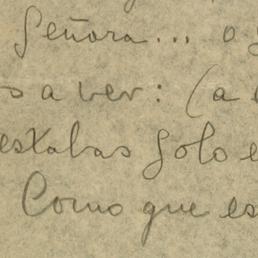 Señora... o
s a ver: (a
estabas solo e
Como que es